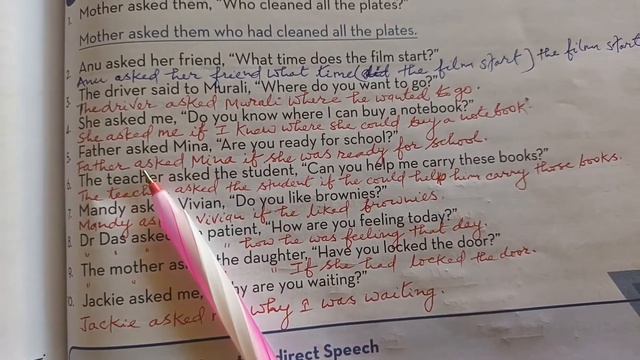 1. Mother asked them, "Who cleaned all the plates?"
Mother asked them who had cleaned all the plates.
2. Anu asked her friend, "What time does the film start?"
Anu asked her friend what time (did the film start) the film start
3. The driver said to Murali, "Where do you want to go?"
The driver asked Murali where he wanted to go.
4. She asked me, "Do you know where I can buy a notebook?"
She asked me if I knew where she could buy a notebook.
5. Father asked Mina, "Are you ready for school?"
Father asked Mina if she was ready for school.
6. The teacher asked the student, "Can you help me carry these books?"
The teach asked the student if he could help him carry those books.
7. Mandy ask Vivian, "Do you like brownies?"
Mandy as Vivian if he liked brownies.
8. Dr Das asked patient, "How are you feeling today?"
" " " how he was feeling that day.
9. The mother as the daughter, "Have you locked the door?"
" " " If she had locked the door.
10. Jackie asked me, hy are you waiting?"
Jackie asked why I was waiting.
direct Speech